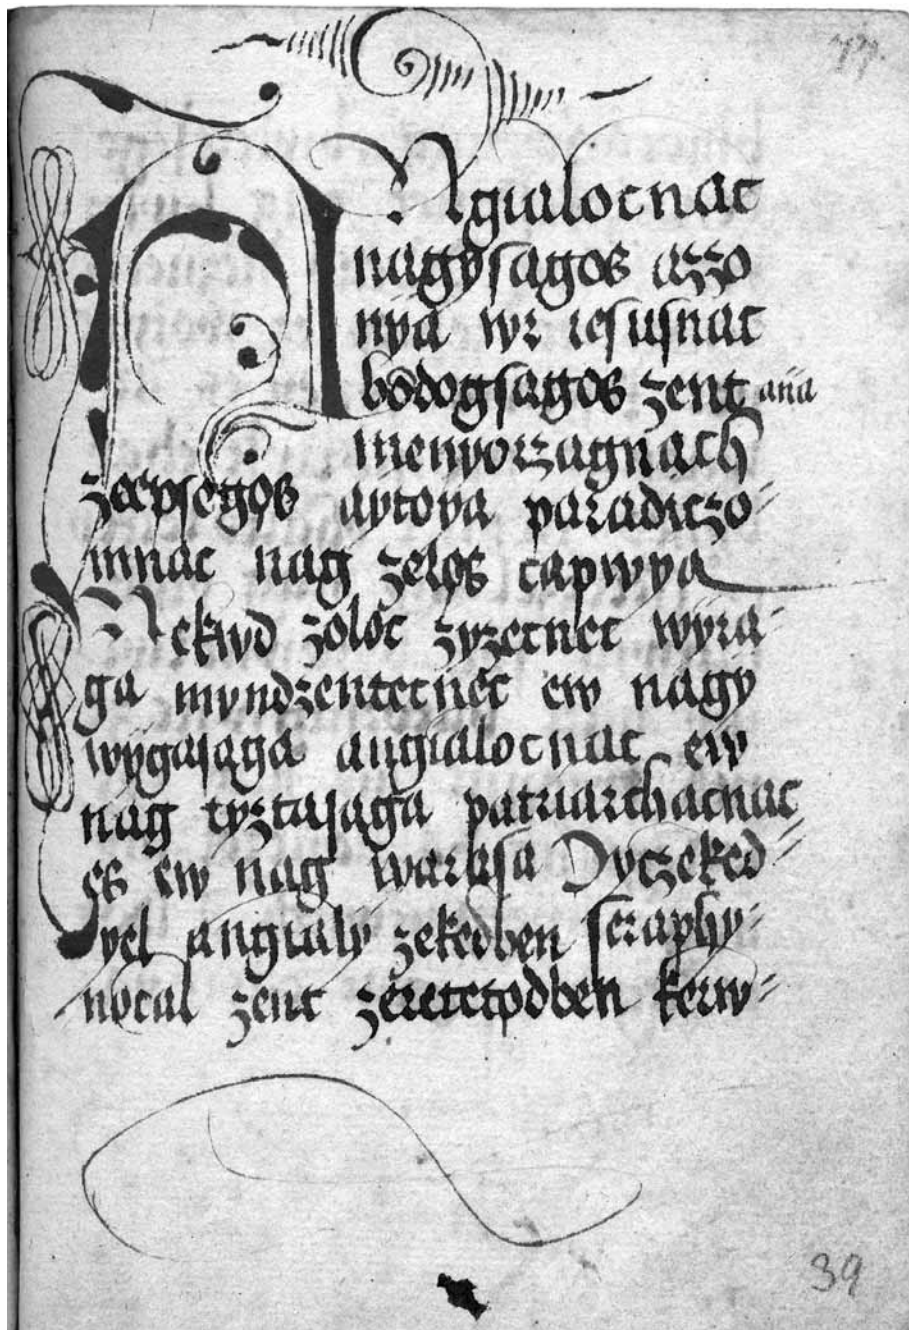 77
ANgialocnac
nagysagos azzo
nya wr iesusnac
bodogsagos zent aña
menyorzagnach
zeepsegos aytoya paradiczo
mnac nag zelos capwya
Nekwd zoloc zyzecnec wyra
ga myndzentecnec ew nagy
wygasaga angialocnac ew
nag tyztasaga patriarchacnac
es ew nag warasa Dyczeked
yel angialy zekedben seraphy
nocal zent zeretetodben kerw
39